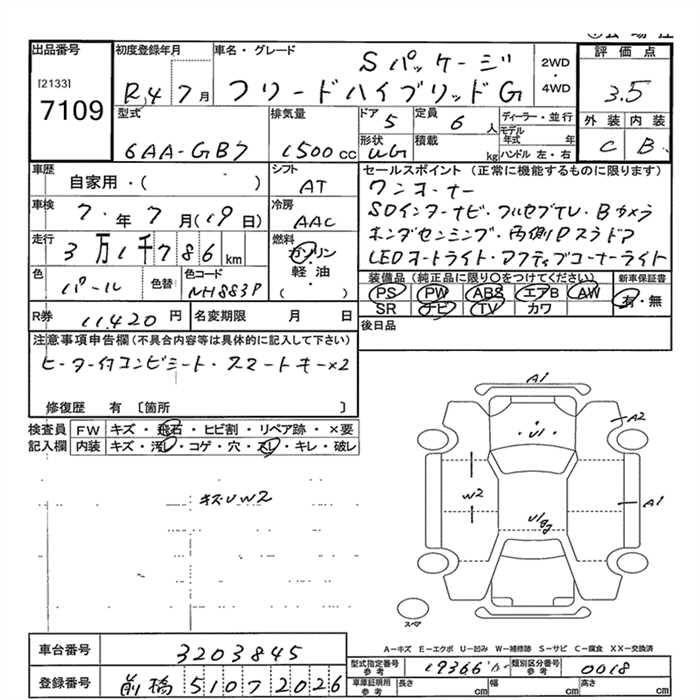 出品番号
[2133]
7109
初度登録年月
R.4 7月
車名・グレード
Sパッケージ
フリードハイブリッドG
2WD
・
4WD
評価点
3.5
外装 内装
C B
型式
6AA-GB7
排気量
1500cc
ドア
5
形状
UG
定員
6人
積載
kg
ディーラー・並行
モデル年式 年
ハンドル 左・右
車歴
自家用・( )
シフト
AT
車検
7.年7月(19日)
冷房
AAC
走行
3万1千786km
燃料
ガソリン
・
軽油
( )
色
パール
色替
色コード
NH883P
R券
11,420円
名変期限 月 日
セールスポイント (正常に機能するものに限ります)
ワンオーナー
SDインターナビ・フルセグTV・Bカメラ
ホンダセンシング・両側Pスラドア
LEDオートライト・アクティブコーナーライト
装備品 (純正品に限り○をつけてください)
PS PW ABS エアB AW
SR ナビ TV カワ
新車保証書
有・無
後日品
注意事項申告欄 (不具合内容等は具体的に記入して下さい)
ヒーター付コンビシート・スマートキー×2
修復歴 有 [箇所 ]
検査員記入欄
FW キズ・飛石・ヒビ割・リペア跡・×要
内装 キズ・汚レ・コゲ・穴・スレ・キレ・破レ
キズUW2
A1
A2
U1
W2
A1
スペア
A−キズ E−エクボ U−凹み W−補修跡 S−サビ C−腐食 XX−交換済
車台番号
3203845
登録番号
前橋 5107 2026
型式指定番号
参考
19366
類別区分番号
参考
0018
車庫証明用
参考
長さ cm
幅 cm
高さ cm